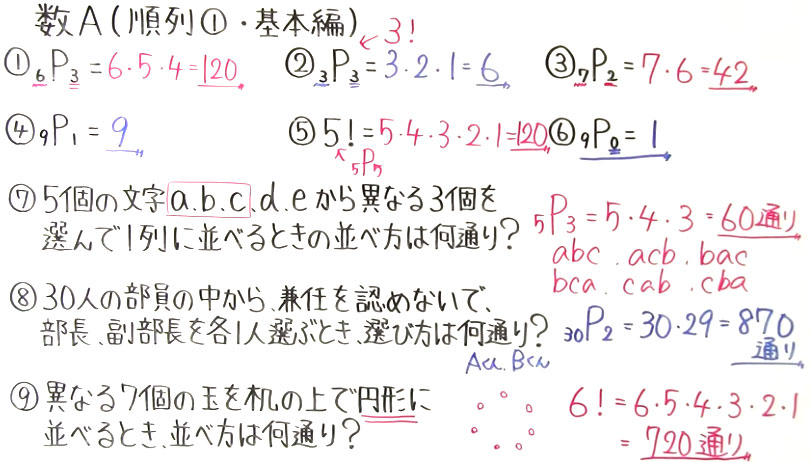 数A(順列①・基本編)
① ₆P₃ = 6・5・4 = 120
② ₃P₃ = 3・2・1 = 6
3!
③ ₇P₂ = 7・6 = 42
④ ₉P₁ = 9
⑤ 5! = 5・4・3・2・1 = 120
₅P₅
⑥ ₉P₀ = 1
⑦ 5個の文字a.b.c、d、eから異なる3個を
選んで1列に並べるときの並べ方は何通り?
₅P₃ = 5・4・3 = 60通り
abc . acb . bac
bca . cab . cba
⑧ 30人の部員の中から、兼任を認めないで、
部長、副部長を各1人選ぶとき、選び方は何通り?
₃₀P₂ = 30・29 = 870
通り
Aくん. Bくん
⑨ 異なる7個の玉を机の上で円形に
並べるとき、並べ方は何通り?
6! = 6・5・4・3・2・1
= 720通り